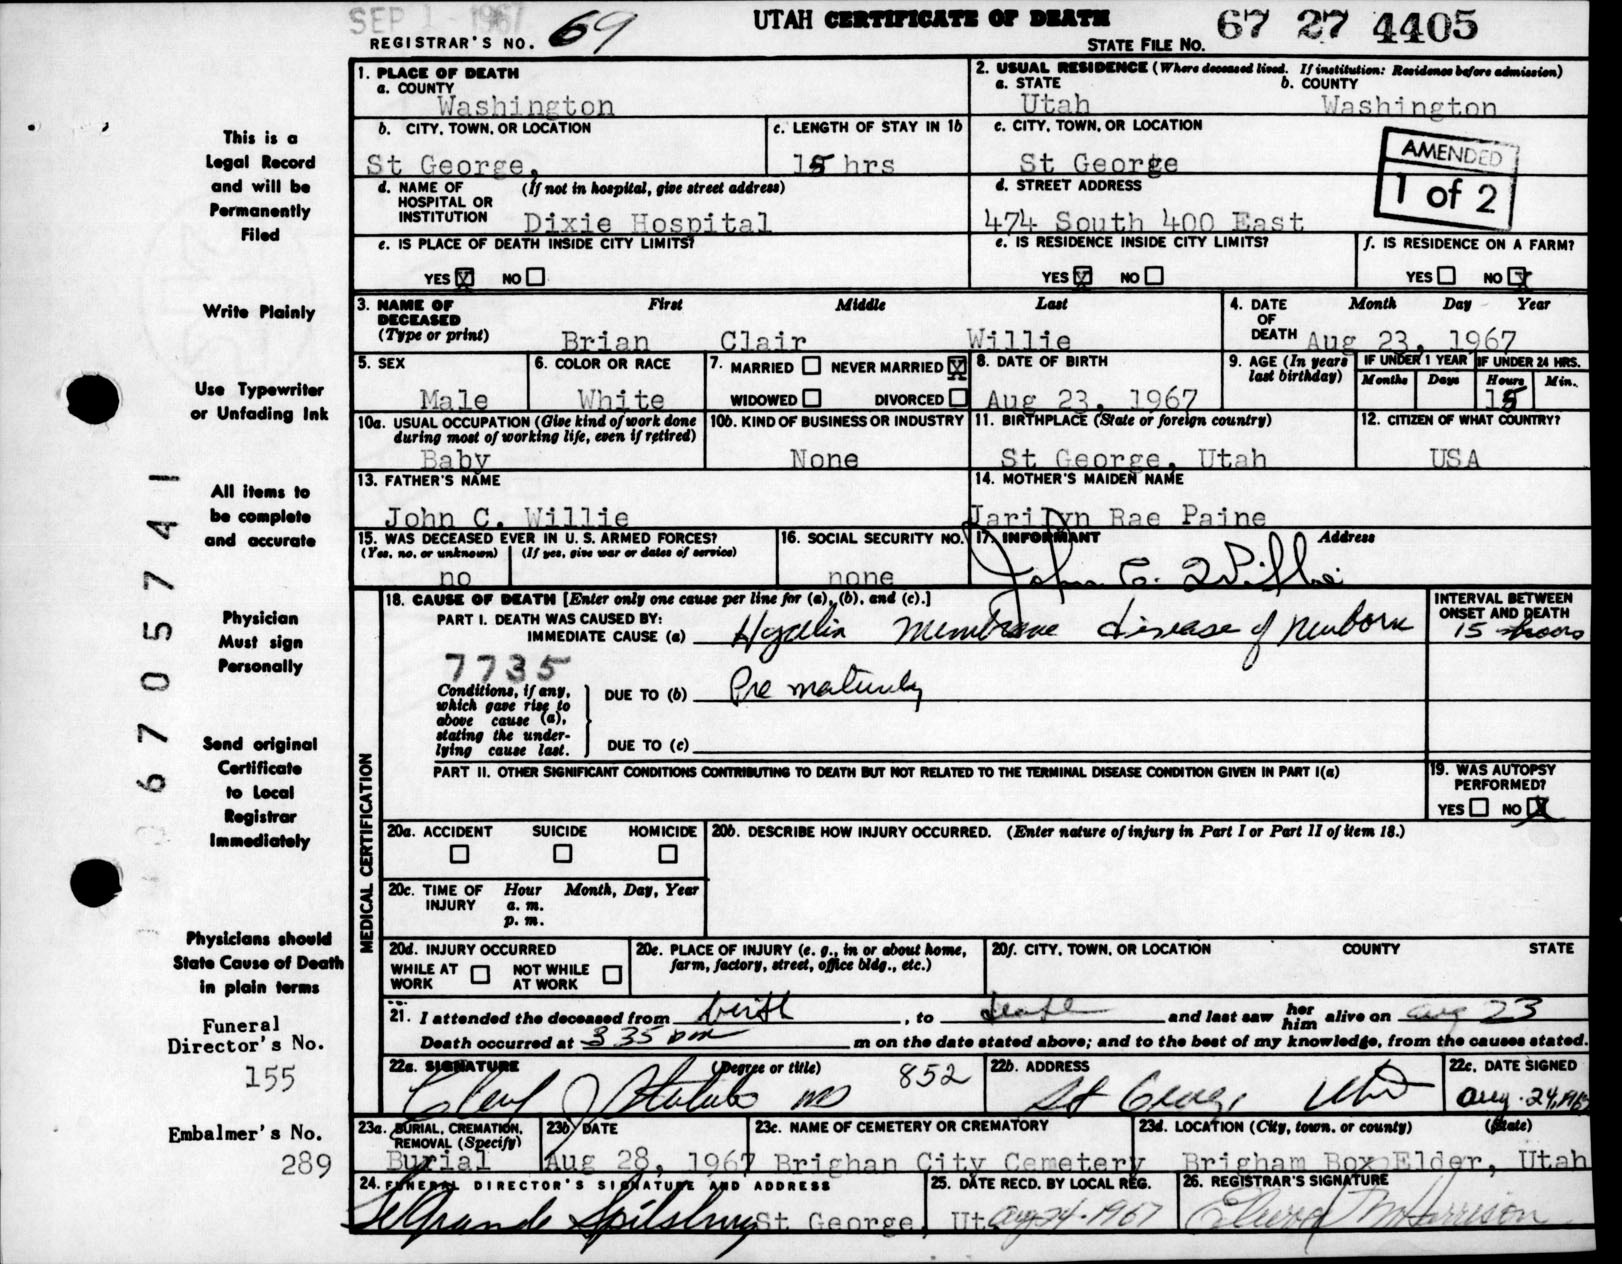 SEP 1 - 1967
REGISTRAR'S NO. 69
UTAH CERTIFICATE OF DEATH
STATE FILE NO. 67 27 4405
This is a
Legal Record
and will be
Permanently
Filed
Write Plainly
Use Typewriter
or Unfading Ink
All items to
be complete
and accurate
Physician
Must sign
Personally
Send original
Certificate
to Local
Registrar
Immediately
Physicians should
State Cause of Death
in plain terms
Funeral
Director's No.
155
Embalmer's No.
289
67 05741
1. PLACE OF DEATH
a. COUNTY
Washington
2. USUAL RESIDENCE (Where deceased lived. If institution: Residence before admission)
a. STATE b. COUNTY
Utah Washington
b. CITY, TOWN, OR LOCATION
St George,
c. LENGTH OF STAY IN 1b
15 hrs
c. CITY, TOWN, OR LOCATION
St George
AMENDED
1 of 2
d. NAME OF HOSPITAL OR INSTITUTION (If not in hospital, give street address)
Dixie Hospital
d. STREET ADDRESS
474 South 400 East
e. IS PLACE OF DEATH INSIDE CITY LIMITS?
YES X NO
e. IS RESIDENCE INSIDE CITY LIMITS?
YES X NO
f. IS RESIDENCE ON A FARM?
YES NO X
3. NAME OF DECEASED (Type or print) First Middle Last
Brian Clair Willie
4. DATE OF DEATH Month Day Year
Aug 23, 1967
5. SEX
Male
6. COLOR OR RACE
White
7. MARRIED NEVER MARRIED X
WIDOWED DIVORCED
8. DATE OF BIRTH
Aug 23, 1967
9. AGE (In years last birthday)
IF UNDER 1 YEAR IF UNDER 24 HRS.
Months Days Hours Min.
15
10a. USUAL OCCUPATION (Give kind of work done during most of working life, even if retired)
Baby
10b. KIND OF BUSINESS OR INDUSTRY
None
11. BIRTHPLACE (State or foreign country)
St George, Utah
12. CITIZEN OF WHAT COUNTRY?
USA
13. FATHER'S NAME
John C. Willie
14. MOTHER'S MAIDEN NAME
Jarilyn Rae Paine
15. WAS DECEASED EVER IN U. S. ARMED FORCES?
(Yes, no, or unknown) (If yes, give war or dates of service)
no
16. SOCIAL SECURITY NO.
none
17. INFORMANT Address
John C. Willie
MEDICAL CERTIFICATION
18. CAUSE OF DEATH [Enter only one cause per line for (a), (b), and (c).]
INTERVAL BETWEEN ONSET AND DEATH
PART I. DEATH WAS CAUSED BY:
IMMEDIATE CAUSE (a) Hyalin Membrane disease of newborn 15 hours
7735
Conditions, if any, which gave rise to above cause (a), stating the underlying cause last.
DUE TO (b) Prematurely
DUE TO (c)
PART II. OTHER SIGNIFICANT CONDITIONS CONTRIBUTING TO DEATH BUT NOT RELATED TO THE TERMINAL DISEASE CONDITION GIVEN IN PART I(a)
19. WAS AUTOPSY PERFORMED?
YES NO X
20a. ACCIDENT SUICIDE HOMICIDE
20b. DESCRIBE HOW INJURY OCCURRED. (Enter nature of injury in Part I or Part II of item 18.)
20c. TIME OF INJURY Hour Month, Day, Year
a. m.
p. m.
20d. INJURY OCCURRED
WHILE AT WORK NOT WHILE AT WORK
20e. PLACE OF INJURY (e. g., in or about home, farm, factory, street, office bldg., etc.)
20f. CITY, TOWN, OR LOCATION COUNTY STATE
21. I attended the deceased from birth, to death and last saw her him alive on Aug 23
Death occurred at 3 35 pm m on the date stated above; and to the best of my knowledge, from the causes stated.
22a. SIGNATURE (Degree or title)
MD 852
22b. ADDRESS
St George, Utah
22c. DATE SIGNED
Aug. 24, 1967
23a. BURIAL, CREMATION, REMOVAL (Specify)
Burial
23b. DATE
Aug 28, 1967
23c. NAME OF CEMETERY OR CREMATORY
Brighan City Cemetery
23d. LOCATION (City, town, or county) (State)
Brigham Box Elder, Utah
24. FUNERAL DIRECTOR'S SIGNATURE AND ADDRESS
LeGrande Spilsbury St George, Ut
25. DATE RECD. BY LOCAL REG.
Aug 24-1967
26. REGISTRAR'S SIGNATURE